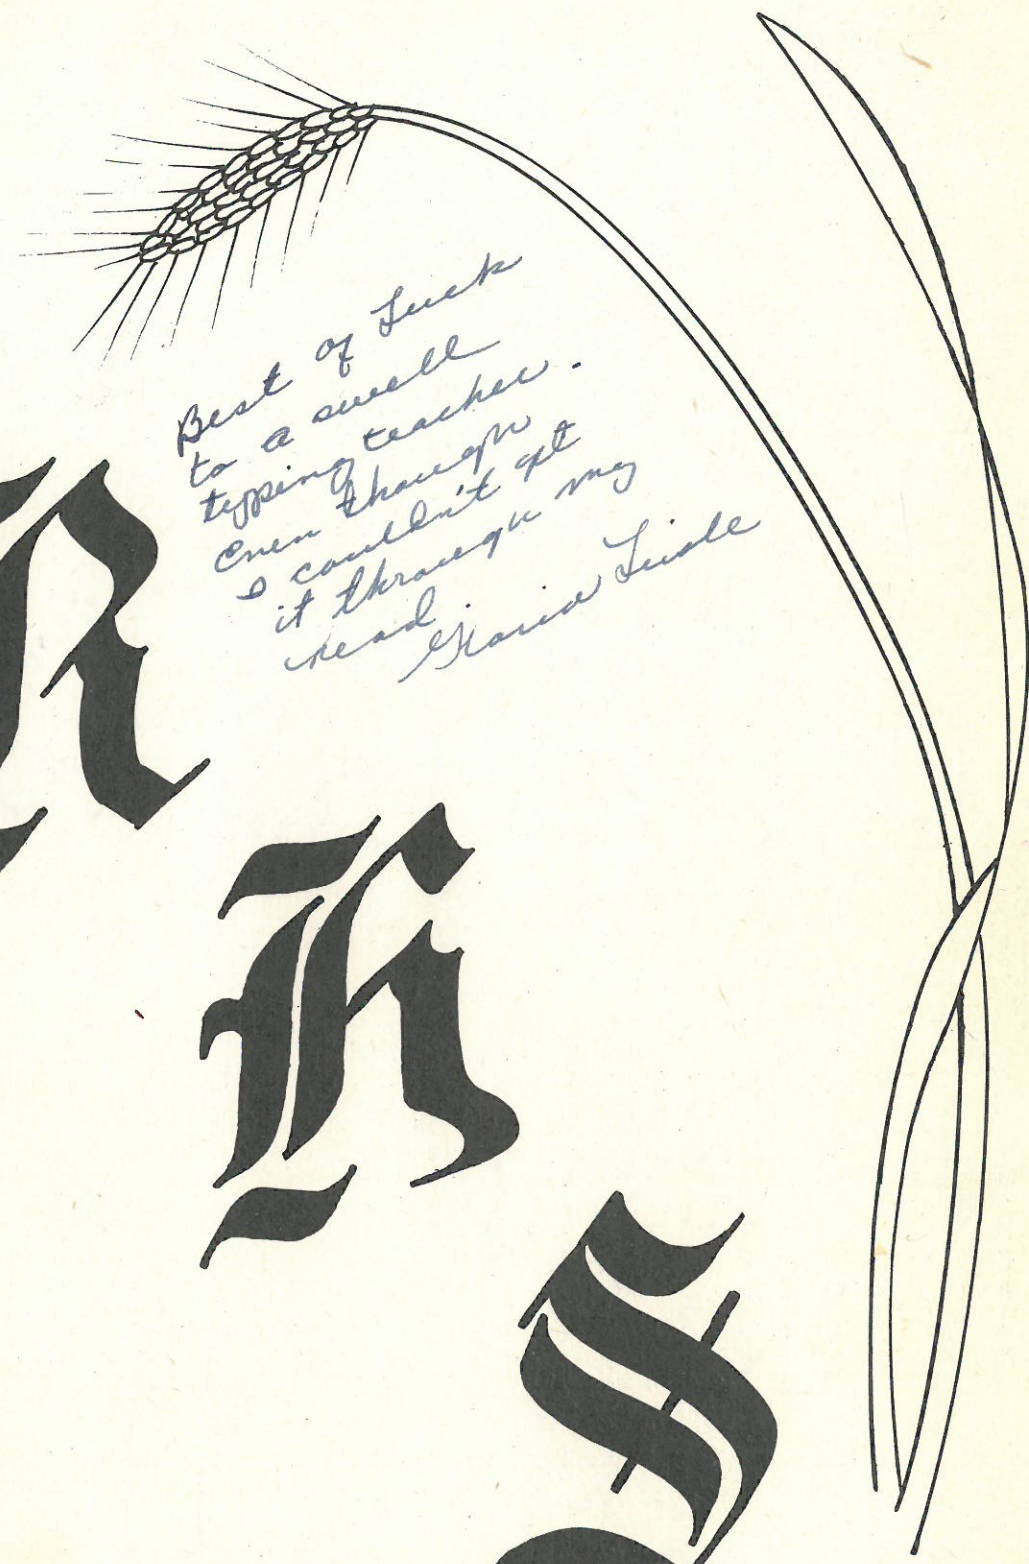 Best of Luck
to a swell
typing teacher.
Even though
I couldn't get
it through my
head.
R
H
S